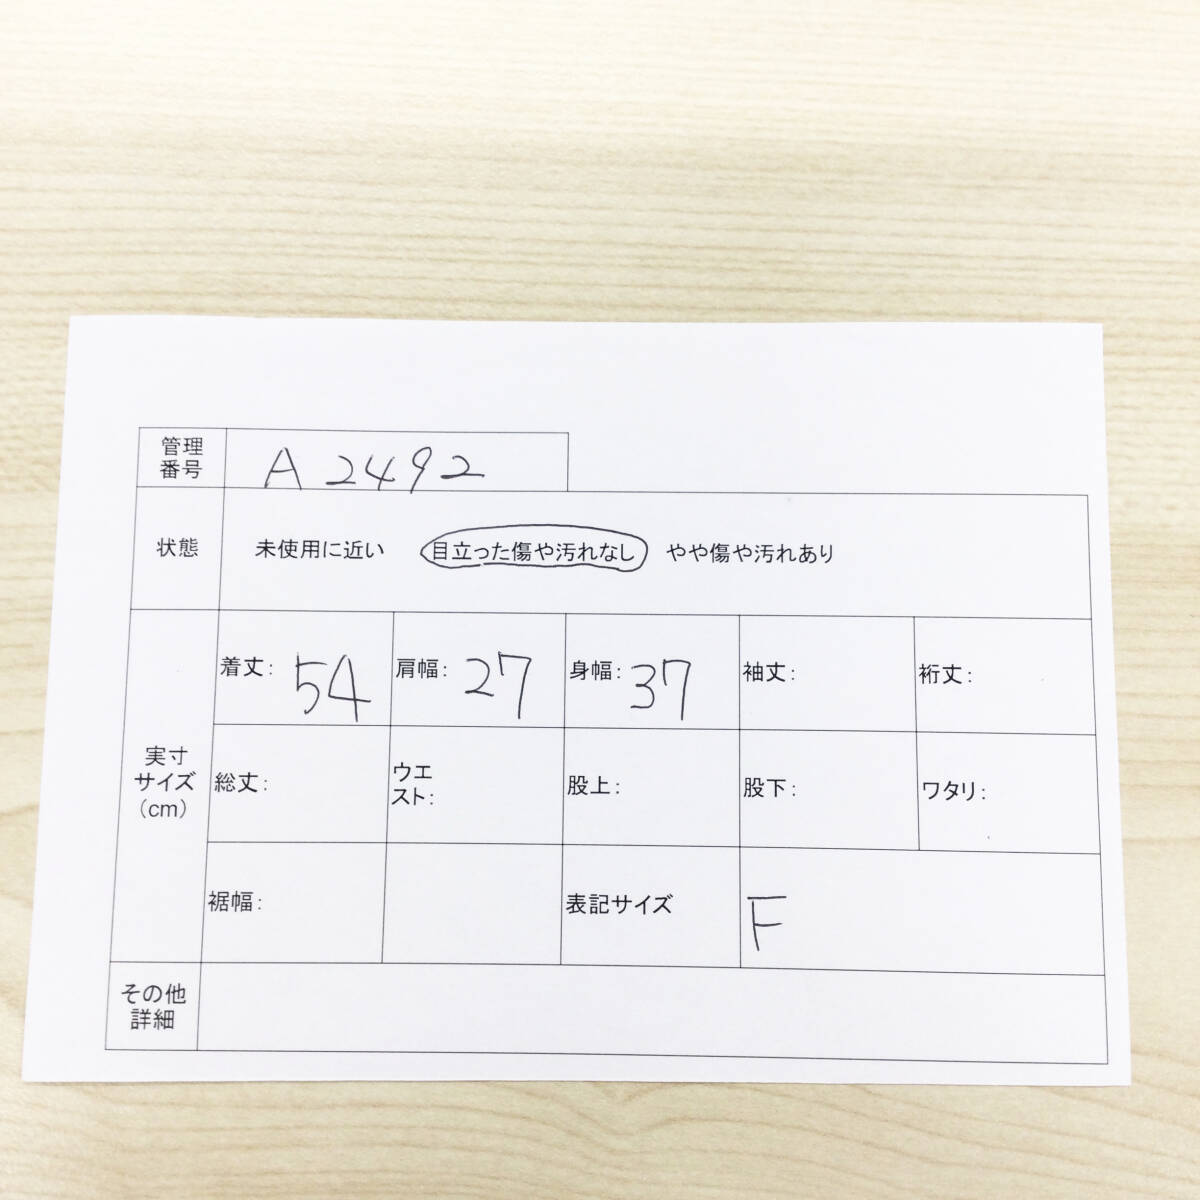 管理
番号
A2492
状態
未使用に近い 目立った傷や汚れなし やや傷や汚れあり
実寸
サイズ
(cm)
着丈: 54 肩幅: 27 身幅: 37 袖丈: 裄丈:
総丈: ウエ
スト: 股上: 股下: ワタリ:
裾幅: 表記サイズ F
その他
詳細